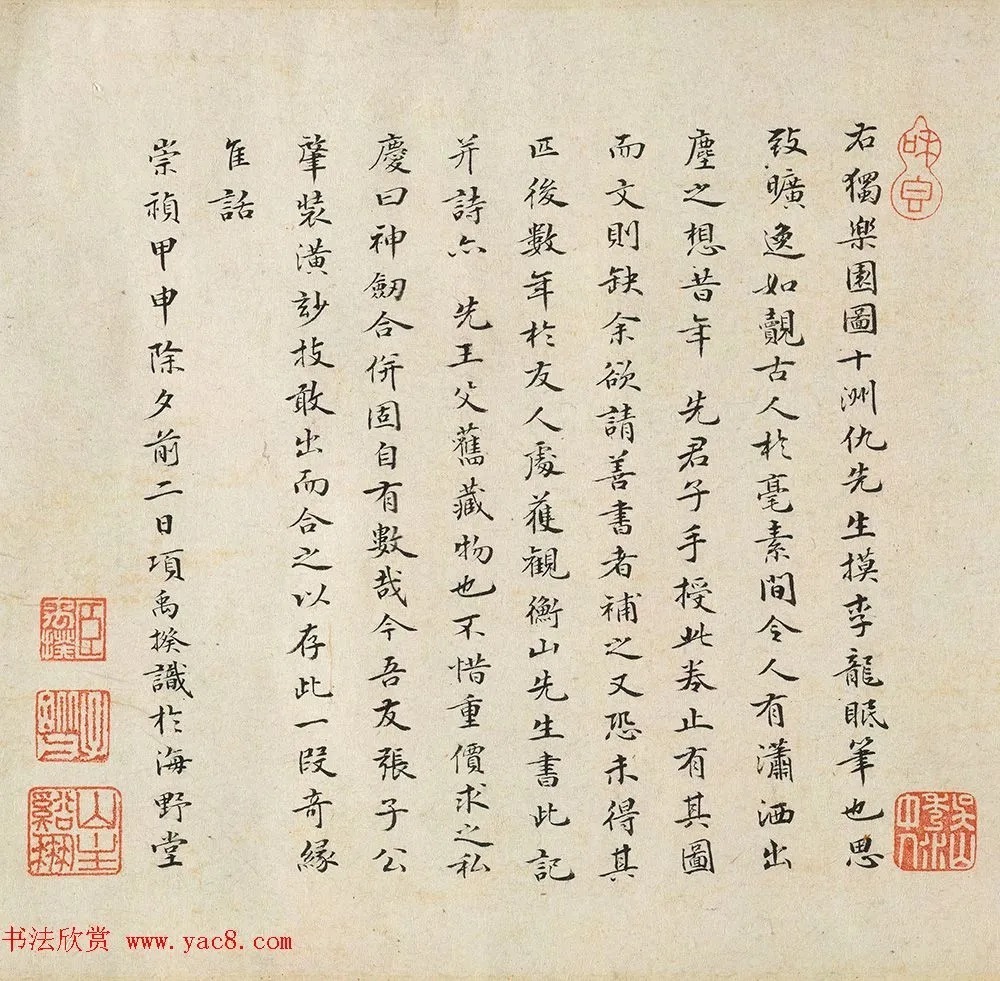 右獨樂園圖十洲仇先生摸李龍眠筆也思
致曠逸如覿古人於毫素間令人有瀟洒出
塵之想昔年　先君子手授此卷止有其圖
而文則缺余欲請善書者補之又恐未得其
匹後數年於友人處獲觀衡山先生書此記
并詩亦　先王父舊藏物也不惜重價求之私
慶曰神劒合併固自有數哉今吾友張子公
肇裝潢玅技敢出而合之以存此一段奇緣
隹話
崇禎甲申除夕前二日項禹揆識於海野堂
书法欣赏 www.yac8.com